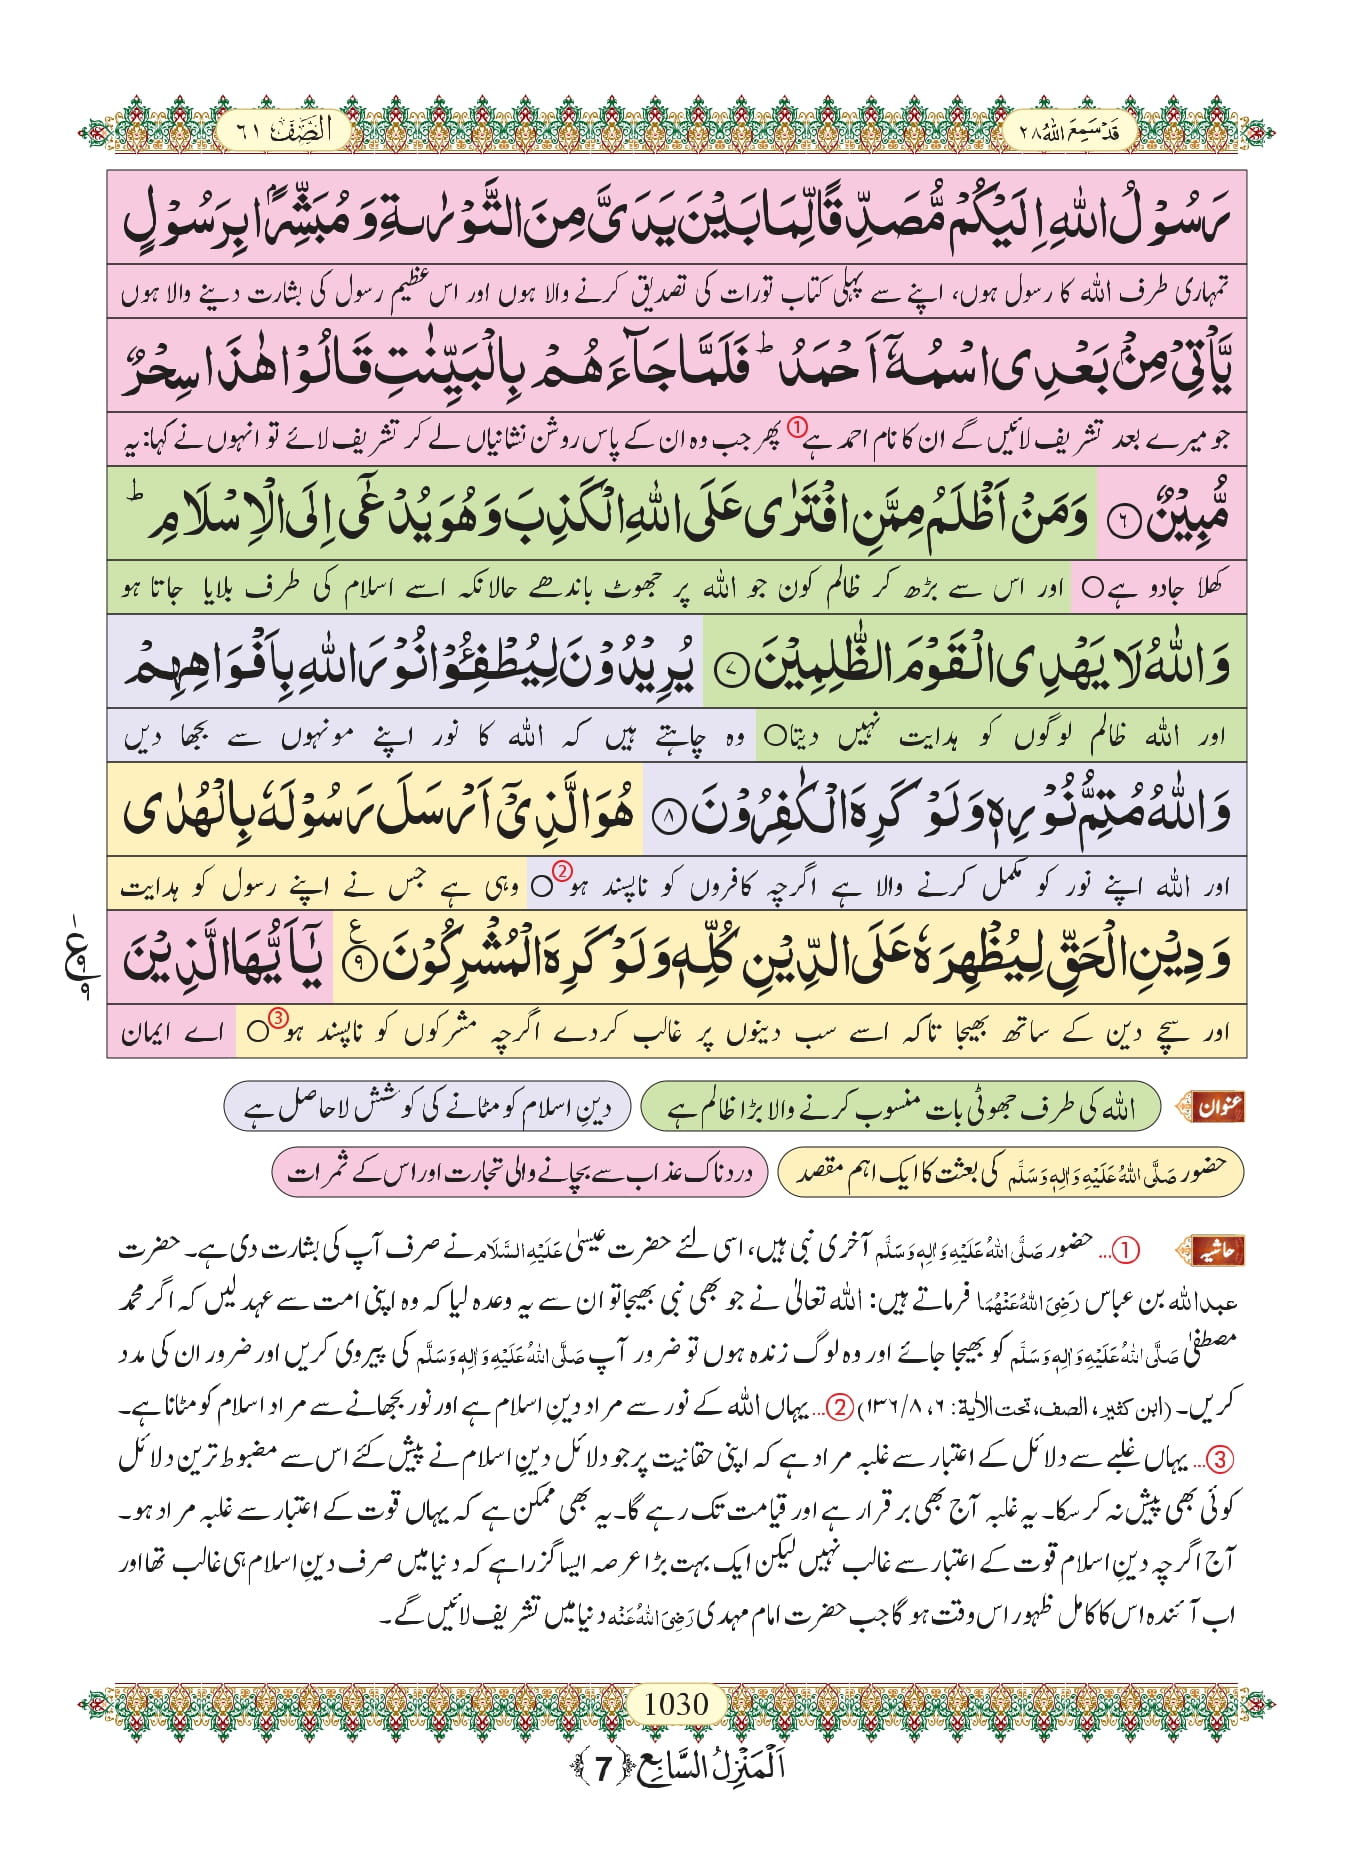 قَدْ سَمِعَ اللهُ ٢٨
الصَّفّ ٦١
رَسُوْلُ اللهِ اِلَيْكُمْ مُّصَدِّقًا لِّمَا بَيْنَ يَدَیَّ مِنَ التَّوْرٰىةِ وَ مُبَشِّرًۢا بِرَسُوْلٍ
تمہاری طرف اللہ کا رسول ہوں، اپنے سے پہلی کتاب تورات کی تصدیق کرنے والا ہوں اور اس عظیم رسول کی بشارت دینے والا ہوں
یَّاْتِیْ مِنْۢ بَعْدِی اسْمُهٗۤ اَحْمَدُ ؕ فَلَمَّا جَآءَهُمْ بِالْبَیِّنٰتِ قَالُوْا هٰذَا سِحْرٌ
جو میرے بعد تشریف لائیں گے ان کا نام احمد ہے① پھر جب وہ ان کے پاس روشن نشانیاں لے کر تشریف لائے تو انہوں نے کہا: یہ
مُّبِیْنٌ ﴿۶﴾ وَ مَنْ اَظْلَمُ مِمَّنِ افْتَرٰی عَلَی اللهِ الْكَذِبَ وَ هُوَ یُدْعٰۤی اِلَی الْاِسْلَامِ ؕ
کھلا جادو ہے○ اور اس سے بڑھ کر ظالم کون جو اللہ پر جھوٹ باندھے حالانکہ اسے اسلام کی طرف بلایا جاتا ہو
وَ اللهُ لَا یَهْدِی الْقَوْمَ الظّٰلِمِیْنَ ﴿۷﴾ یُرِیْدُوْنَ لِیُطْفِـُٔوْا نُوْرَ اللهِ بِاَفْوَاهِهِمْ
اور اللہ ظالم لوگوں کو ہدایت نہیں دیتا○ وہ چاہتے ہیں کہ اللہ کا نور اپنے مونہوں سے بجھا دیں
وَ اللهُ مُتِمُّ نُوْرِهٖ وَ لَوْ كَرِهَ الْكٰفِرُوْنَ ﴿۸﴾ هُوَ الَّذِیْۤ اَرْسَلَ رَسُوْلَهٗ بِالْهُدٰی
اور اللہ اپنے نور کو مکمل کرنے والا ہے اگرچہ کافروں کو ناپسند ہو②○ وہی ہے جس نے اپنے رسول کو ہدایت
وَ دِیْنِ الْحَقِّ لِیُظْهِرَهٗ عَلَی الدِّیْنِ كُلِّهٖ وَ لَوْ كَرِهَ الْمُشْرِكُوْنَ ﴿۹﴾ ع یٰۤاَیُّهَا الَّذِیْنَ
ع
۹
۹
اور سچے دین کے ساتھ بھیجا تاکہ اسے سب دینوں پر غالب کردے اگرچہ مشرکوں کو ناپسند ہو③○ اے ایمان
عنوان اللہ کی طرف جھوٹی بات منسوب کرنے والا بڑا ظالم ہے دینِ اسلام کو مٹانے کی کوشش لاحاصل ہے
حضور صَلَّی اللهُ عَلَیْهِ وَاٰلِهٖ وَسَلَّم کی بعثت کا ایک اہم مقصد دردناک عذاب سے بچانے والی تجارت اور اس کے ثمرات
حاشیہ ①... حضور صَلَّی اللهُ عَلَیْهِ وَاٰلِهٖ وَسَلَّم آخری نبی ہیں، اسی لئے حضرت عیسیٰ عَلَیْهِ السَّلَام نے صرف آپ کی بشارت دی ہے۔ حضرت
عبداللہ بن عباس رَضِیَ اللهُ عَنْهُمَا فرماتے ہیں: اللہ تعالیٰ نے جو بھی نبی بھیجا تو ان سے یہ وعدہ لیا کہ وہ اپنی امت سے عہد لیں کہ اگر محمد
مصطفیٰ صَلَّی اللهُ عَلَیْهِ وَاٰلِهٖ وَسَلَّم کو بھیجا جائے اور وہ لوگ زندہ ہوں تو ضرور آپ صَلَّی اللهُ عَلَیْهِ وَاٰلِهٖ وَسَلَّم کی پیروی کریں اور ضرور ان کی مدد
کریں۔ (ابن کثیر، الصف، تحت الآیة: ۶، ۸/۱۳۶) ②... یہاں اللہ کے نور سے مراد دینِ اسلام ہے اور نور بجھانے سے مراد اسلام کو مٹانا ہے۔
③... یہاں غلبے سے دلائل کے اعتبار سے غلبہ مراد ہے کہ اپنی حقانیت پر جو دلائل دینِ اسلام نے پیش کئے اس سے مضبوط ترین دلائل
کوئی بھی پیش نہ کرسکا۔ یہ غلبہ آج بھی برقرار ہے اور قیامت تک رہے گا۔ یہ بھی ممکن ہے کہ یہاں قوت کے اعتبار سے غلبہ مراد ہو۔
آج اگرچہ دینِ اسلام قوت کے اعتبار سے غالب نہیں لیکن ایک بہت بڑا عرصہ ایسا گزرا ہے کہ دنیا میں صرف دینِ اسلام ہی غالب تھا اور
اب آئندہ اس کا کامل ظہور اس وقت ہو گا جب حضرت امام مہدی رَضِیَ اللهُ عَنْه دنیا میں تشریف لائیں گے۔
1030
اَلْمَنْزِلُ السَّابِع ﴿7﴾